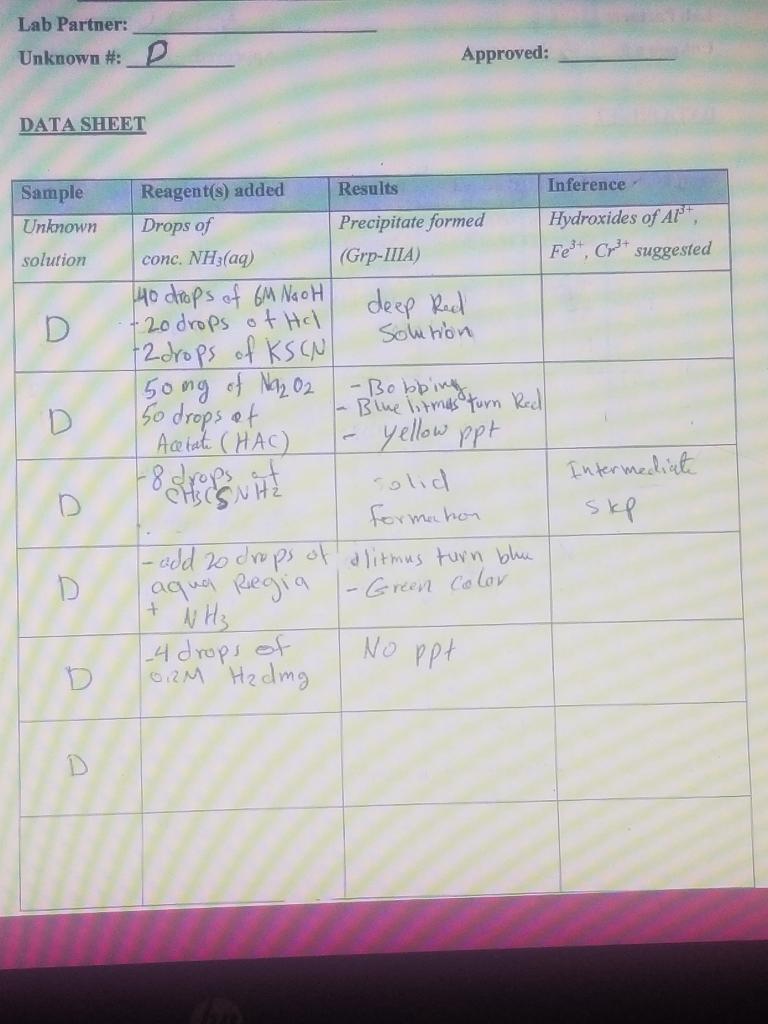 Lab Partner:
Unknown #: D
Approved:
DATA SHEET
Sample Reagent(s) added Results Inference
Unknown solution
Drops of conc. NH3(aq)
Precipitate formed (Grp-IIIA)
Hydroxides of Al³⁺, Fe³⁺, Cr³⁺ suggested
D
40 drops of 6M NaOH
+20 drops of Hcl
+2drops of KSCN
deep Red
Solution
D
50 mg of Na2O2
50 drops of
Acetate (HAC)
- Bobbing
- Blue litmus turn Red
- yellow ppt
D
-8 drops of
CH3CSNH2
solid
formation
Intermediate
skp
D
-add 20 drops of
aqua Regia
+ NH3
litmus turn blue
- Green Color
D
-4 drops of
0.2M H2dmg
NO ppt
D
hp